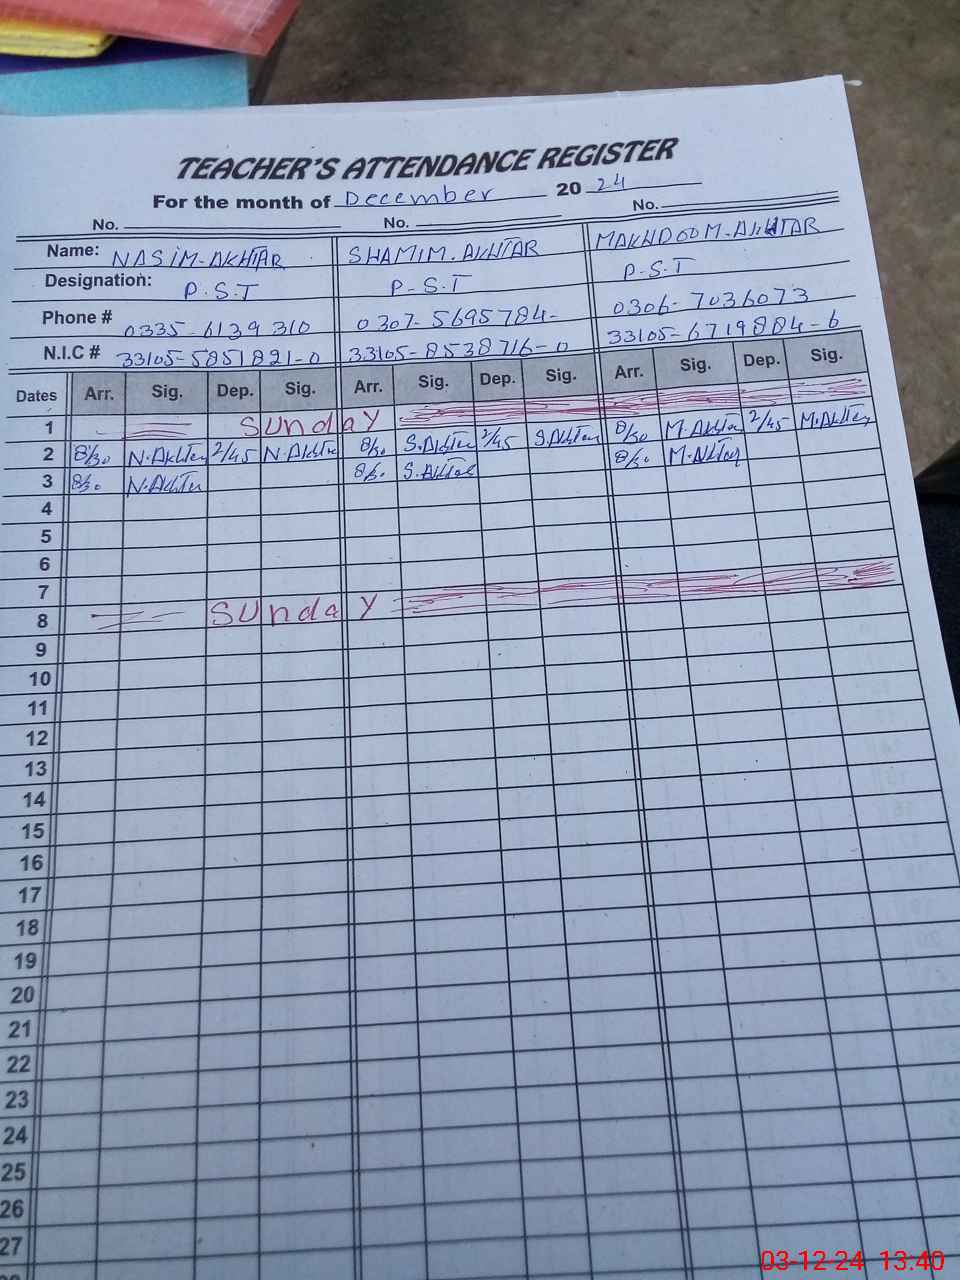 TEACHER'S ATTENDANCE REGISTER
For the month of December 2024
No. No. No.
Name: NASIM-AKHTAR SHAMIM.AKHTAR MAKHDOOM-AKHTAR
Designation: P.S.T P-S.T P-S.T
Phone # 0335-6139310 0307-5695784- 0306-7036073
N.I.C # 33105-5851821-0 33105-8538716-0 33105-6719884-6
Dates Arr. Sig. Dep. Sig. Arr. Sig. Dep. Sig. Arr. Sig. Dep. Sig.
1 Sunday
2 8/30 N.Akhter 2/45 N.Akhter 8/30 S.Akhter 2/45 S.Akhter 8/30 M.Akhter 2/45 M.Akhter
3 8/30 N.Akhter 8/30 S.Akhter 8/30 M.Akhter
4
5
6
7
8 Sunday
9
10
11
12
13
14
15
16
17
18
19
20
21
22
23
24
25
26
27
03-12-24 13:40